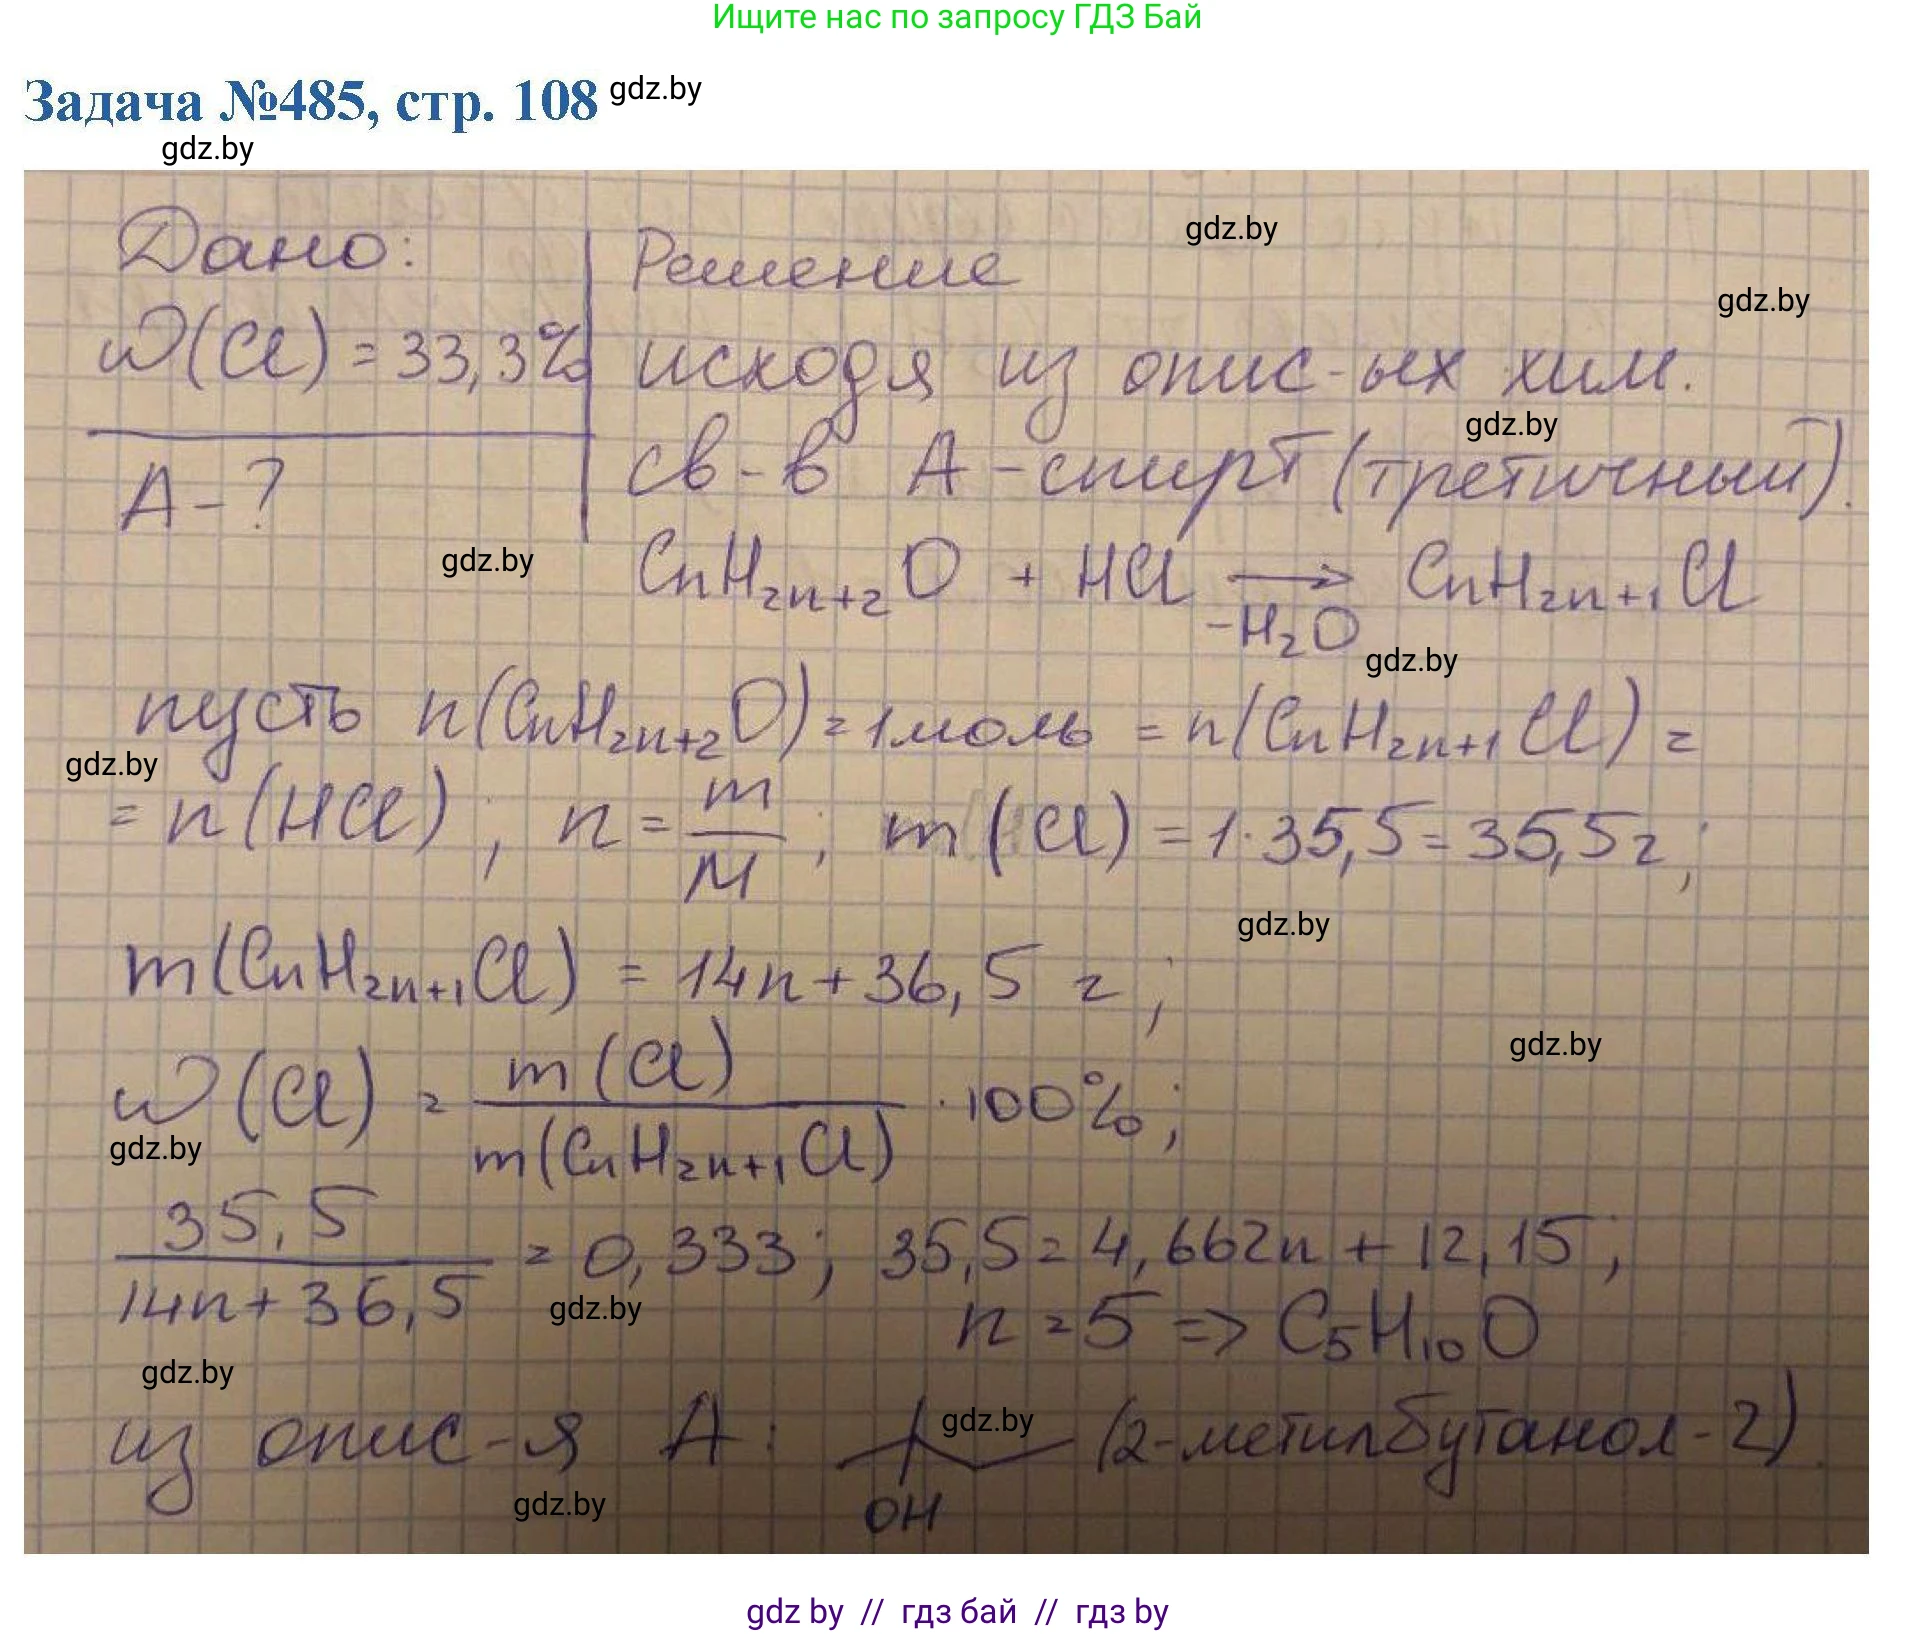 Ищите нас по запросу ГДЗ Бай
Задача №485, стр. 108 gdz.by
gdz.by
Дано:
ω(Cl) = 33,3%
A - ?
Решение
gdz.by
gdz.by
исходя из опис-ых хим.
gdz.by
св-в A - спирт (третичный).
gdz.by
CnH2n+2O + HCl → CnH2n+1Cl
-H2O
gdz.by
пусть n(CnH2n+2O) = 1 моль = n(CnH2n+1Cl) =
gdz.by
= n(HCl); n = m/M; m(Cl) = 1·35,5 = 35,5 г;
gdz.by
m(CnH2n+1Cl) = 14n + 36,5 г;
gdz.by
ω(Cl) = m(Cl)/m(CnH2n+1Cl) · 100%;
gdz.by
35,5/14n + 36,5 = 0,333; 35,5 = 4,662n + 12,15;
gdz.by
n = 5 => C5H10O
gdz.by
из опис-я A: (2-метилбутанол-2).
gdz.by
OH
gdz.by
gdz by // гдз бай // гдз by